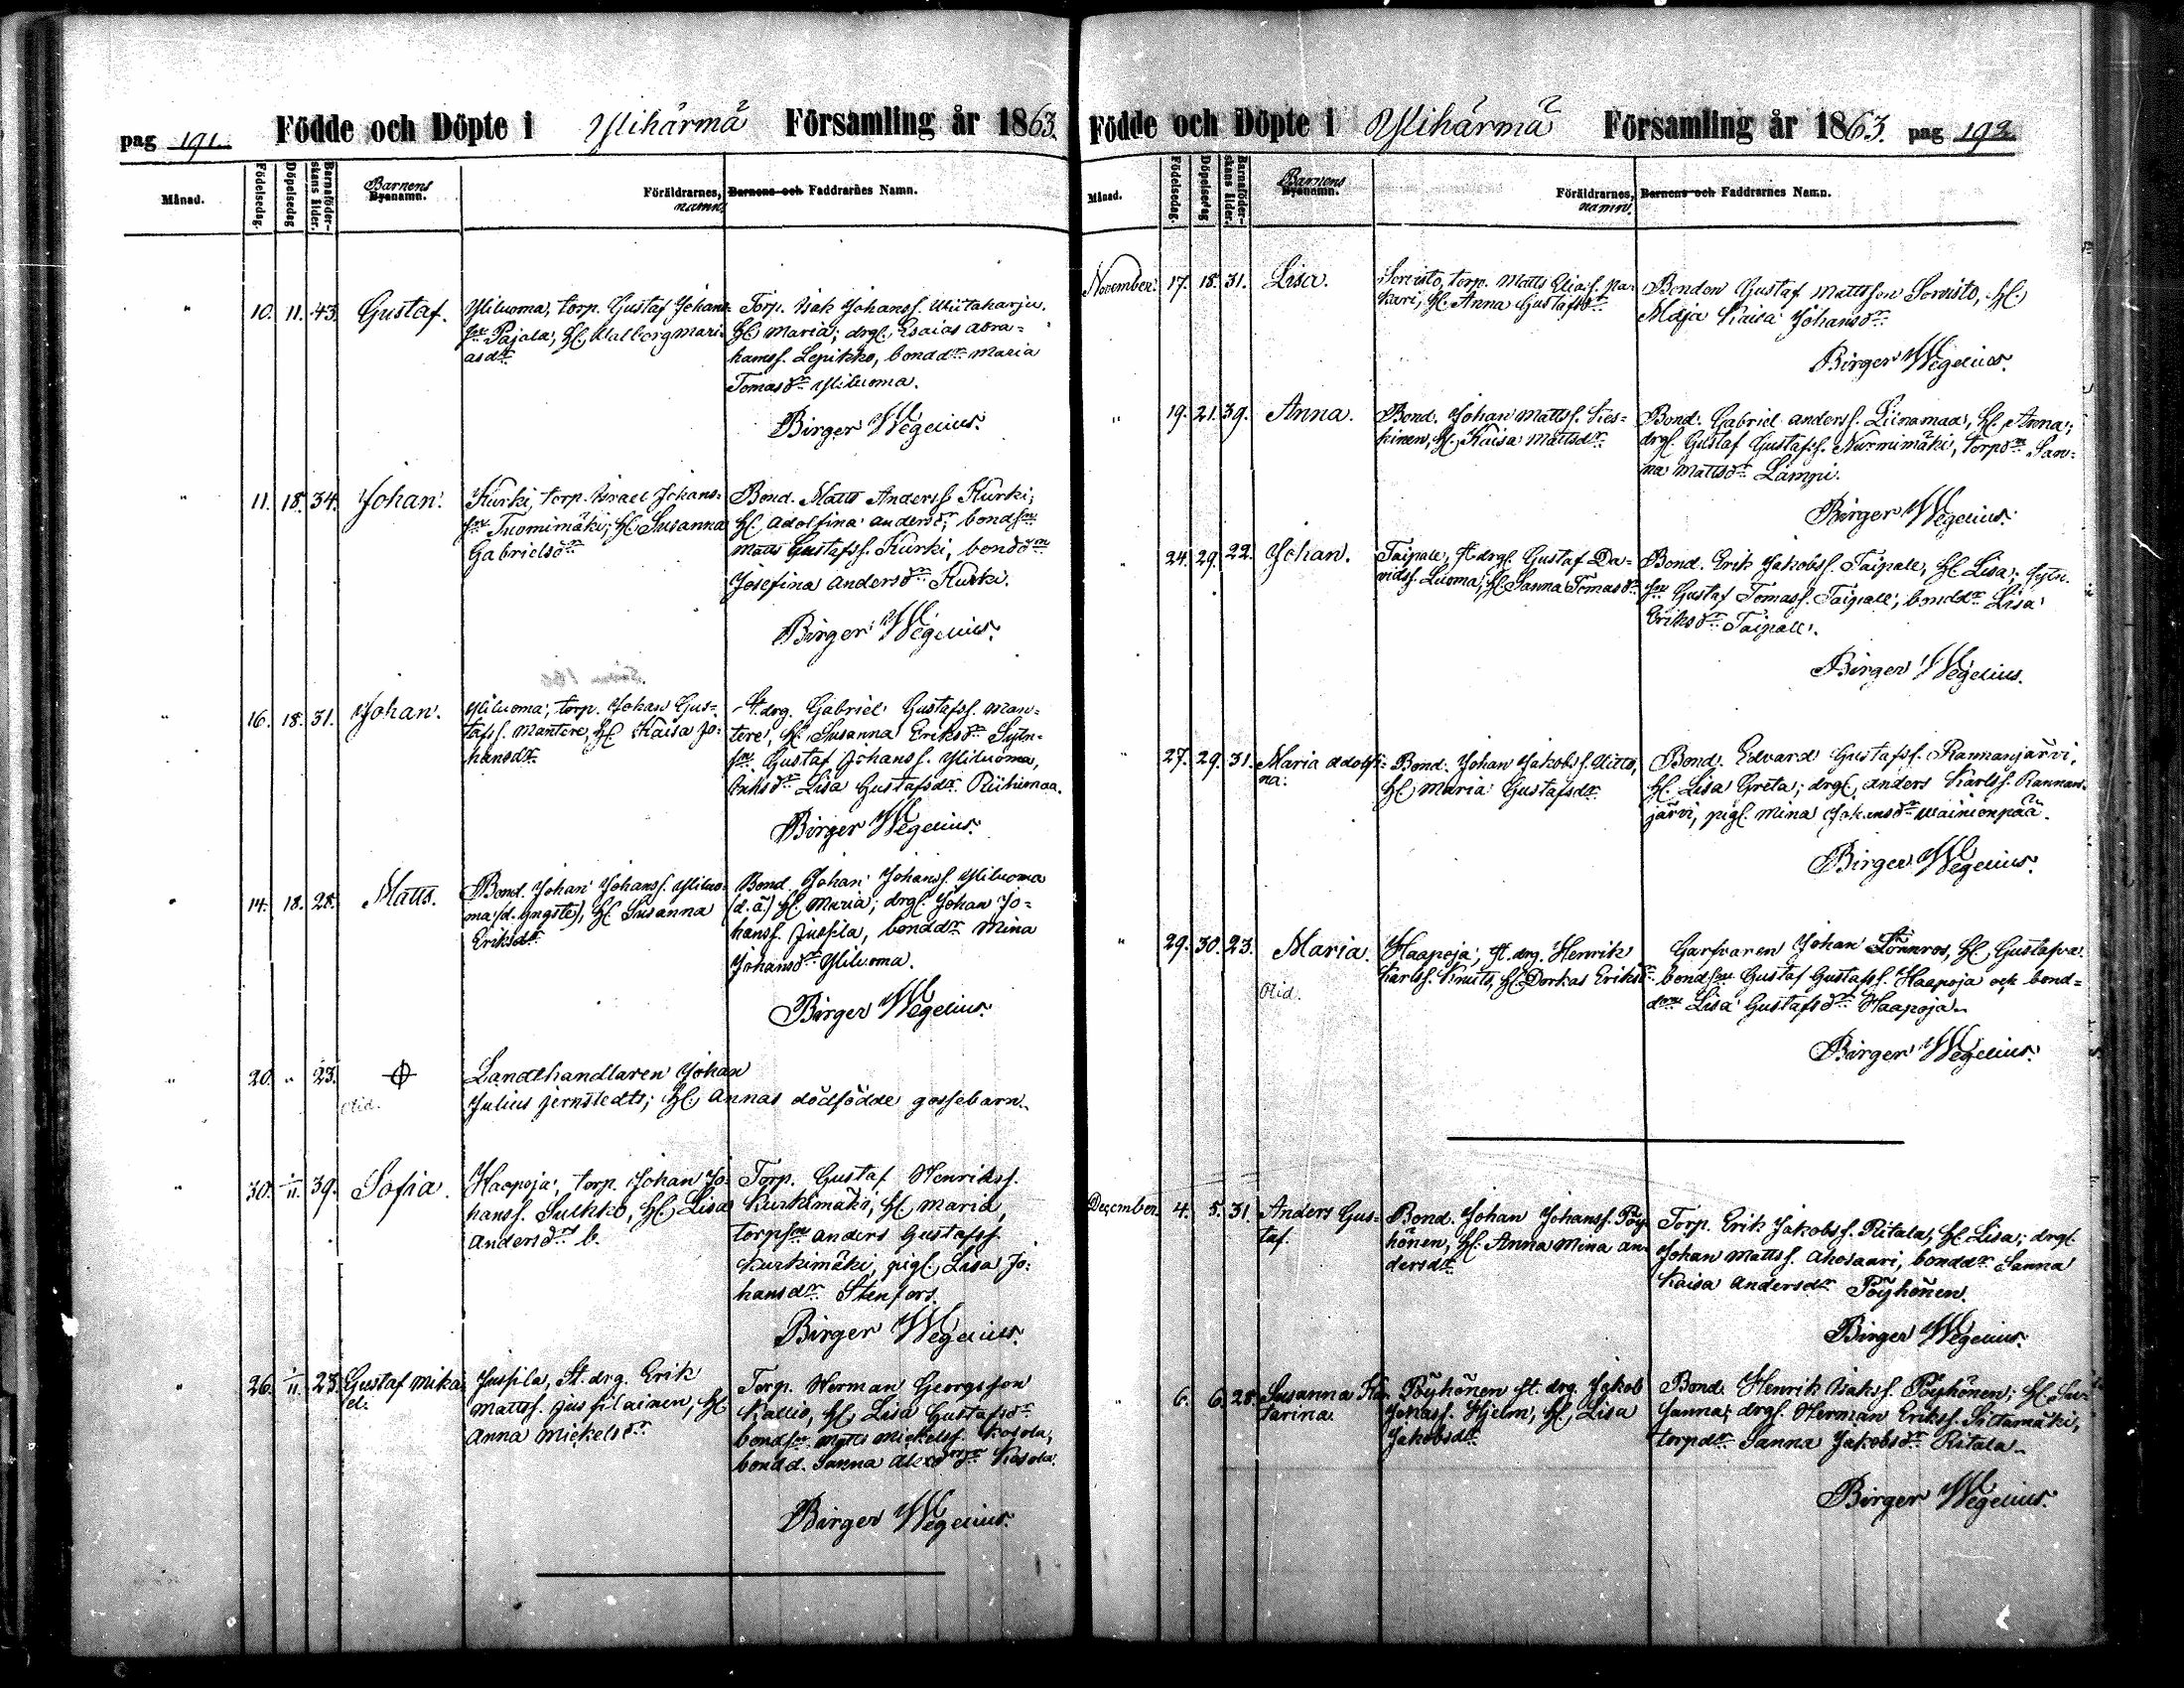 pag 191. Födde och Döpte i Ylihärmä Församling år 1863.
Månad. Födelsedag. Döpelsedag Barnaföderskans ålder. Barnens Bynamn. Föräldrarnes, namn. Barnens och Faddrarnes Namn.
" 10. 11. 43. Gustaf. Yliluoma, torp. Gustaf Johans-
son Pajala, H. Walborg Mari-
asdr
Torp. Isak Johanss. Wiitaharju,
H. Maria; drgl. Esaias Abra-
hamss. Lepikko, bonddr Maria
Tomasdr Yliluoma.
Birger Wegelius.
" 11. 18. 34. Johan. Kurki, torp. Israel Johans-
son Tuomimäki; H. Susanna
Gabrielsdr
Bond. Matts Anderss Kurki,
H. Adolfina Andersdr, bondson
Matts Gustafss. Kurki, bonddrn
Josefina Andersdr Kurki.
Birger Wegelius.
" 16. 18. 31. Johan. Yliluoma, torp. Johan Gus-
tafs. Mantere, H. Kaisa Jo-
hansdr
St. drg. Gabriel Gustafss. Man-
tere, H. Susanna Eriksdr Sytn-
son Gustaf Johanss. Yliluoma,
Lisa Gustafsdr Riihimaa.
Birger Wegelius.
" 14. 18. 28. Matts. Bond. Johan Johanss. Yliluo-
ma (d. yngste), H. Susanna
Eriksdr
Bond. Johan Johanss. Yliluoma
(d.ä.) H. Maria; drgl. Johan Jo-
hanss. Jussila, bonddr Mina
Johansdr Yliluoma.
Birger Wegelius.
" 20. " 23. Olid. Landthandlaren Johan
Julius Jernstedts; H. Annas dödfödde gossebarn.
" 30. 1/11. 39. Sofia. Haapoja, torp. Johan Jo-
hanss. Suikko, H. Lisa
Andersdr b.
Torp. Gustaf Henrikss.
Kurkimäki, H. Maria,
torpson Anders Gustafss.
Kurkimäki, pigl. Lisa Jo-
hansdr Stenfors.
Birger Wegelius.
" 26. 1/11. 23. Gustaf Mika-
el. Jussila, St. drg. Erik
Mattss. Jussilainen, H.
Anna Mickelsdr
Torp. Herman Georgsson
Kallio, H. Lisa Gustafsdr
bondson Matts Mickelss. Kosola,
bondd. Sanna Kosola.
Birger Wegelius.
Födde och Döpte i Ylihärmä Församling år 1863. pag 192.
Månad. Födelsedag. Döpelsedag Barnaföderskans ålder. Barnens Bynamn. Föräldrarnes, namn. Barnens och Faddrarnes Namn.
November. 17. 18. 31. Lisa. Sorvisto, torp. Matts Eliass. Pa-
kari, H. Anna Gustafsdr
Bonden Gustaf Mattsson Sorvisto, H.
Maja Kaisa Johansdr
Birger Wegelius.
" 19. 21. 39. Anna. Bond. Johan Mattss. Kes-
kinen, H. Kaisa Mattsdr
Bond. Gabriel Anderss. Liinamaa, H. Anna;
drgl. Gustaf Gustafss. Nurmimäki, torpdrn San-
na Mattsdr Lampi.
Birger Wegelius.
" 24. 29. 22. Johan. Taipale, st drgl. Gustaf Da-
vidss. Luoma, H. Sanna Tomasdr
Bond. Erik Jakobss. Taipale, H. Lisa; sytn.
son Gustaf Tomass. Taipale, bonddr Lisa
Eriksdr Taipale.
Birger Wegelius.
" 27. 29. 31. Maria Adolfi-
na. Bond. Johan Jakobss. Uitto,
H. Maria Gustafsdr
Bond. Edvard Gustafss. Rannanjärvi,
H. Lisa Greta; drgl. Anders Karlss. Rannan-
järvi, pigl. Mina Johansdr Wainionpää.
Birger Wegelius.
" 29. 30. 23. Maria. Olid. Haapoja, st. drg. Henrik
Karlss. Knuts, H. Dorkas Eriksdr
Garfvaren Johan Lönnros, H. Gustafva.
bondson Gustaf Gustafss. Haapoja och bond-
dron Lisa Gustafsdr Haapoja.
Birger Wegelius.
December. 4. 5. 31. Anders Gus-
taf. Bond. Johan Johanss. Pöy-
hönen, H. Anna Mina An-
dersdr
Torp. Erik Jakobss. Ritala, H. Lisa; drgl.
Johan Mattss. Ahosaari, bonddr Sanna
Kaisa Andersdr Pöyhönen.
Birger Wegelius.
" 6. 6. 28. Susanna Ka-
tarina. Pöyhönen st. drg. Jakob
Jonass. Hjelm, H. Lisa
Jakobsdr
Bond. Henrik Isakss. Pöyhönen; H. Su-
sanna; drgl. Herman Erikss. Siltamäki,
torpdr Sanna Jakobsdr Ritala.
Birger Wegelius.